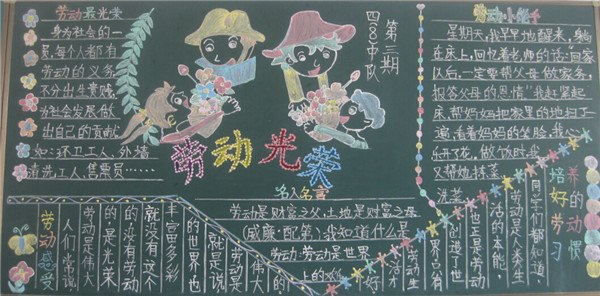 劳动最光荣
身为社会的一
员,每个人都有
劳动的义务,
不分出生贵贱,
为社会发展做
出自己的贡献
如:环卫工人、外墙
清洗工人、售票员……
第三期
四(8)中队
劳动光荣
名人名言
劳动是财富之父,土地是财富之母
(威廉·配第)我知道什么是
劳动:劳动是世界
上的
劳动小能手
星期天,我早早地醒来,躺
在床上,回忆着老师的话:“回家
以后,一定要帮父母做家务,
报答父母的恩情”我赶紧起
床,帮妈妈把家里的地扫了一
遍,看着妈妈的笑脸,我心
乐开了花,做了饭时我
又帮她择菜
洗菜
劳动感受
人们常说
劳动是伟大
的是光荣
的没有劳动
就没有这个
丰富多彩
的世界也
就是说
劳动是
伟大的
培养好的劳动习惯
同学们都知道,
劳动是人类生
活的本能,
也正是劳动
创造了世
界只有